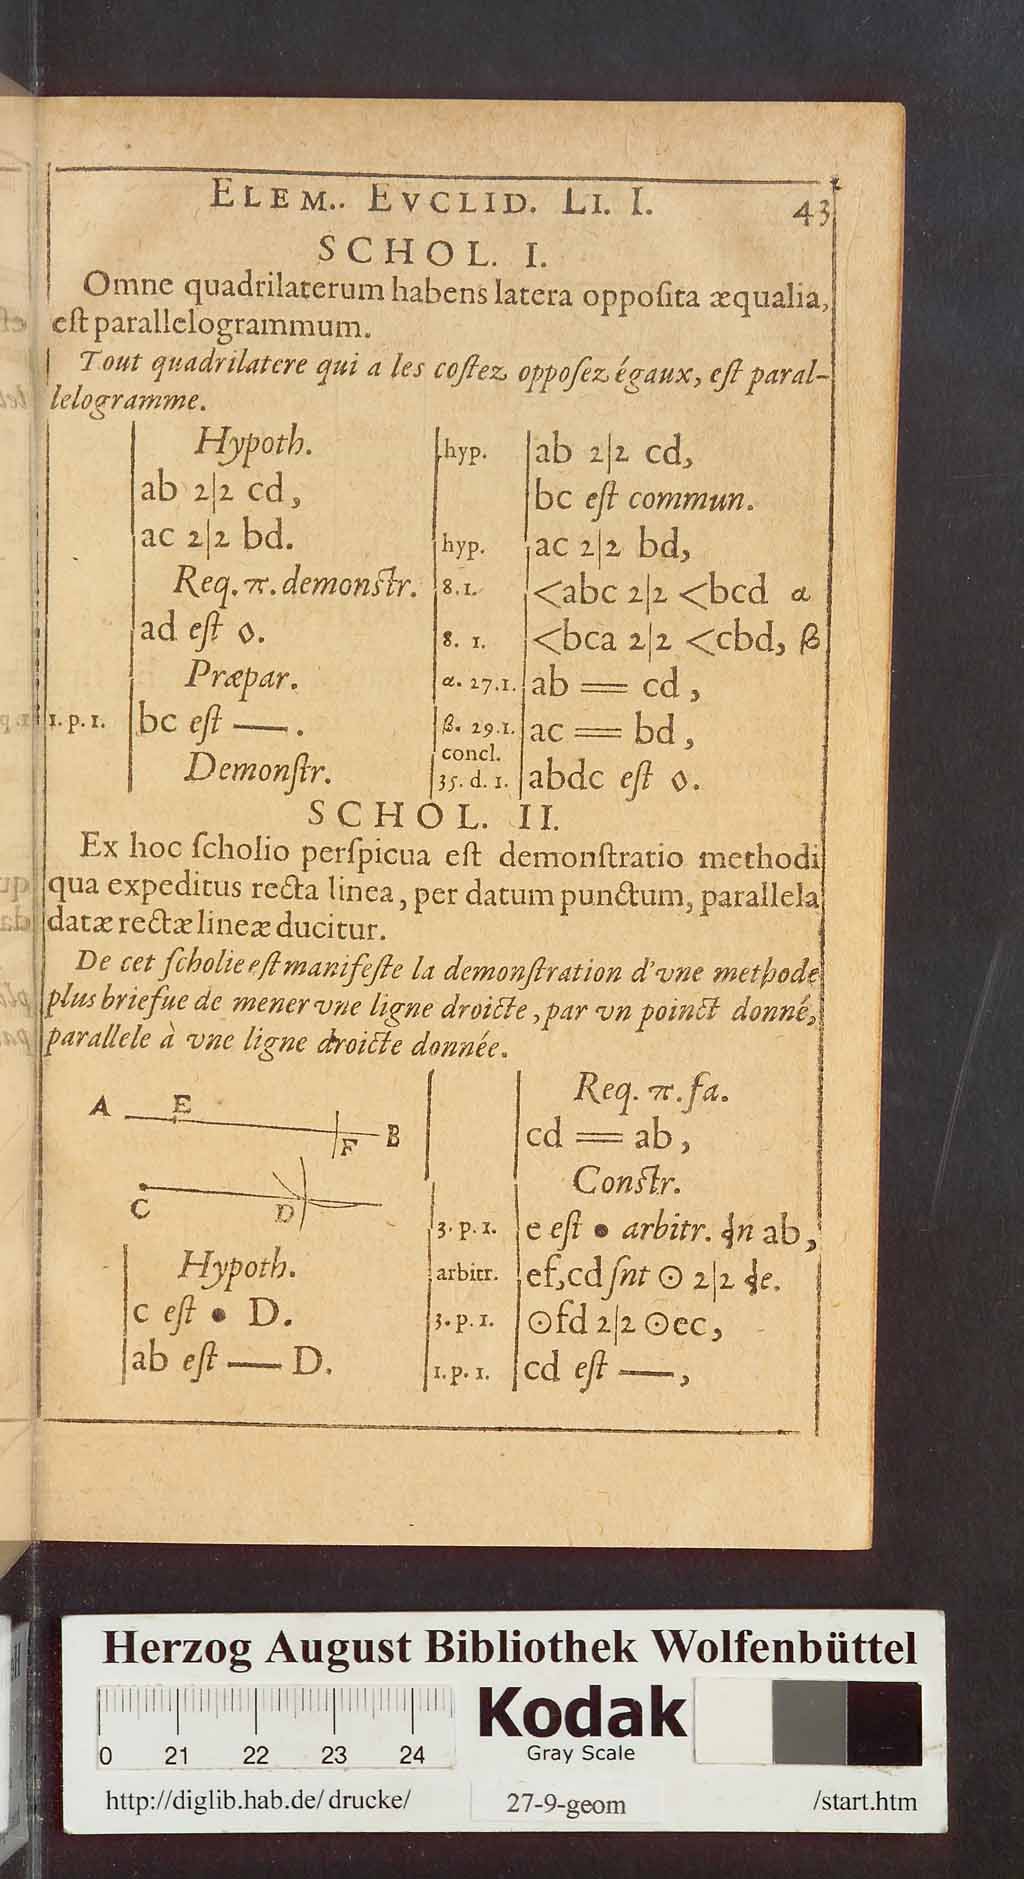 ELEM.. EVCLID. LI. I. 43
SCHOL. I.
Omne quadrilaterum habens latera opposita æqualia,
est parallelogrammum.
Tout quadrilatere qui a les costez opposez égaux, est paral-
lelogramme.
Hypoth.
ab 2|2 cd,
ac 2|2 bd.
Req. π. demonstr.
ad est ◊.
Præpar.
1. p. 1. bc est —.
Demonstr.
hyp. ab 2|2 cd,
bc est commun.
hyp. ac 2|2 bd,
8. 1. <abc 2|2 <bcd α
8. 1. <bca 2|2 <cbd, β
α. 27. 1. ab == cd,
β. 29. 1. ac == bd,
concl.
35. d. 1. abdc est ◊.
SCHOL. II.
Ex hoc scholio perspicua est demonstratio methodi
qua expeditus recta linea, per datum punctum, parallela
datæ rectæ lineæ ducitur.
De cet scholie est manifeste la demonstration d'vne methode
plus briefue de mener vne ligne droicte, par vn poinct donné,
parallele à vne ligne droicte donnée.
A E F B
C D
Hypoth.
c est • D.
ab est — D.
Req. π. fa.
cd == ab,
Constr.
3. p. 1. e est • arbitr. in ab,
arbitr. ef, cd snt ⊙ 2|2 de.
3. p. 1. ⊙fd 2|2 ⊙ec,
1. p. 1. cd est —,
Herzog August Bibliothek Wolfenbüttel
Kodak
Gray Scale
0 21 22 23 24
http://diglib.hab.de/drucke/ 27-9-geom /start.htm